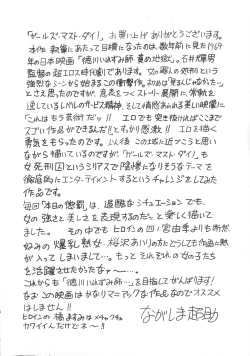 「ガールズ・マスト・ダイ!」お買い上げありがとうございます。
本作執筆にあたって目標になったのは、数年前に見た1969
年の日本映画「徳川いれずみ師・責め地獄」。石井輝男
監督の超エロス時代劇であります。女の罪人の処刑という
強烈なシーンから始まるこの衝撃作。初めは「見るんじゃなかった…」
とさえ思ったのですが、意表をつくストーリー展開に、常軌を
逸しているレベルのサービス精神、そして情感あふれる美しい映像に
「これはもう芸術だッ!! エロでも突き抜ければここまで
スゴい作品ができるんだ!」とすっかり感激!! エロを描く
勇気をもらったのです。以後この二塔に近づこうと思い
ながら描いているのですが、「ガールズ・マスト・ダイ」も
女死刑囚というシリアスで陰惨になりそうなテーマを
徹底的にエンターテイメントするというチャレンジをしてみた
作品です。
毎回「本日の懲罰」は、過酷なシチュエーションでも、
女の強さと美しさを表現するのだ、と楽しく描いて
ました。その中でもヒロインの四ノ宮由季よりも断然
好みの爆乳熱女・梅沢あいりの方とどうしても作画に熱
が入ってしまいまして…。もっとそれぞれの女の子たち
を活躍させたかったなァ〜…。
これからも「徳川いれずみ師…」を目指してがんばります!
なおこの映画はかなりマニアックな作品なのでオススメ
はしません!!
ヒロインの橘ますみはメチャクチャ
カワイイんだけどネ〜!!
ながしま超助